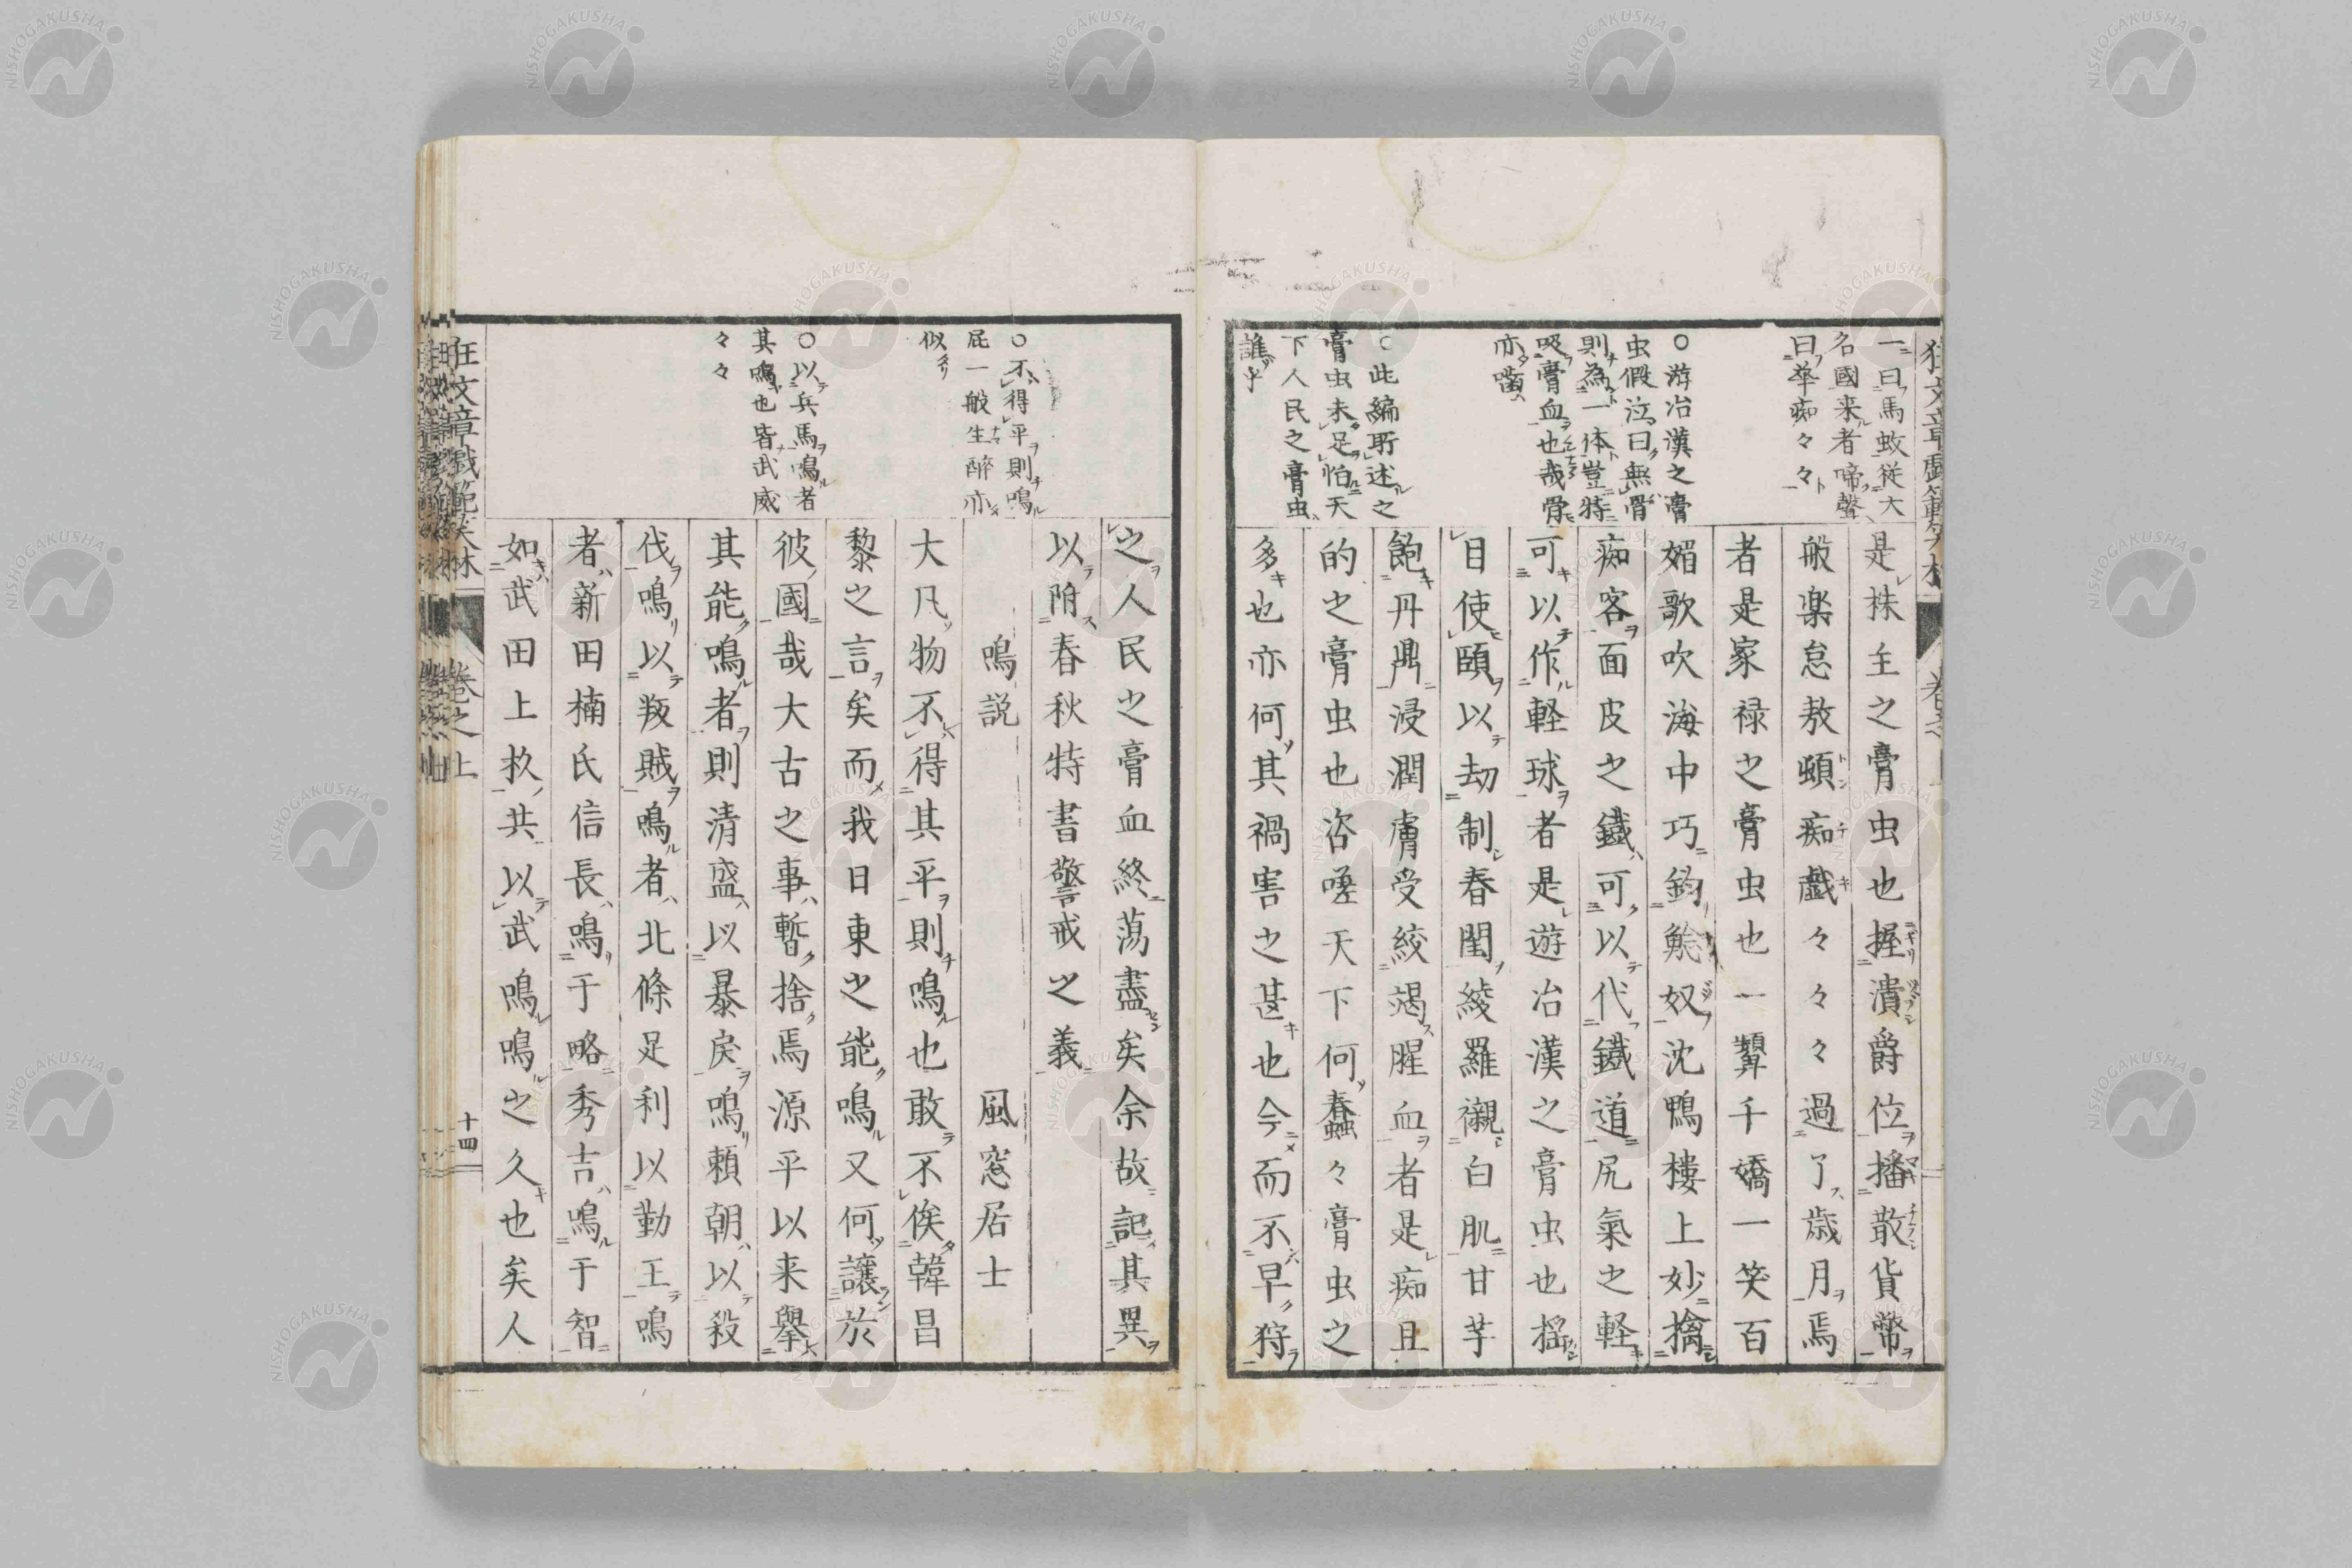 狂文章戯範笑林
一曰馬蚊従大
名國来者啼聲
曰華痴々々
○游冶漢之膏
虫假泣曰無骨
則為一体豈特
吸膏血也哉骨
亦囓
○此編所述之
膏虫未足怕天
下人民之膏虫
誰乎
是株主之膏虫也握潰爵位播散貨幣
般楽怠敖頓痴戯々々々過了歳月焉
者是家禄之膏虫也一顰千嬌一笑百
媚歌吹海中巧釣鯰奴沈鴨楼上妙擒
痴客面皮之鐵可以代鐵道尻氣之軽
可以作軽球者是遊冶漢之膏虫也揺
目使頤以劫制春閨綾羅襯白肌甘芋
飽丹鼎浸潤膚受絞竭腥血者是痴且
的之膏虫也咨嗟天下何蠢々膏虫之
多也亦何其禍害之甚也今而不早狩
○不得平則鳴
屁一般生酔亦
似
○以兵馬鳴者
其鳴也皆武威
々々
之人民之膏血終蕩盡矣余故記其異
以附春秋特書警戒之義
鳴説　風窓居士
大凡物不得其平則鳴也敢不俟韓昌
黎之言矣而我日東之能鳴又何讓於
彼國哉大古之事暫捨焉源平以来擧
其能鳴者則清盛以暴戻鳴頼朝以殺
伐鳴以叛賊鳴者北條足利以勤王鳴
者新田楠氏信長鳴于略秀吉鳴于智
如武田上杦共以武鳴鳴之久也矣人
狂文章戯範笑林　巻之上　十四